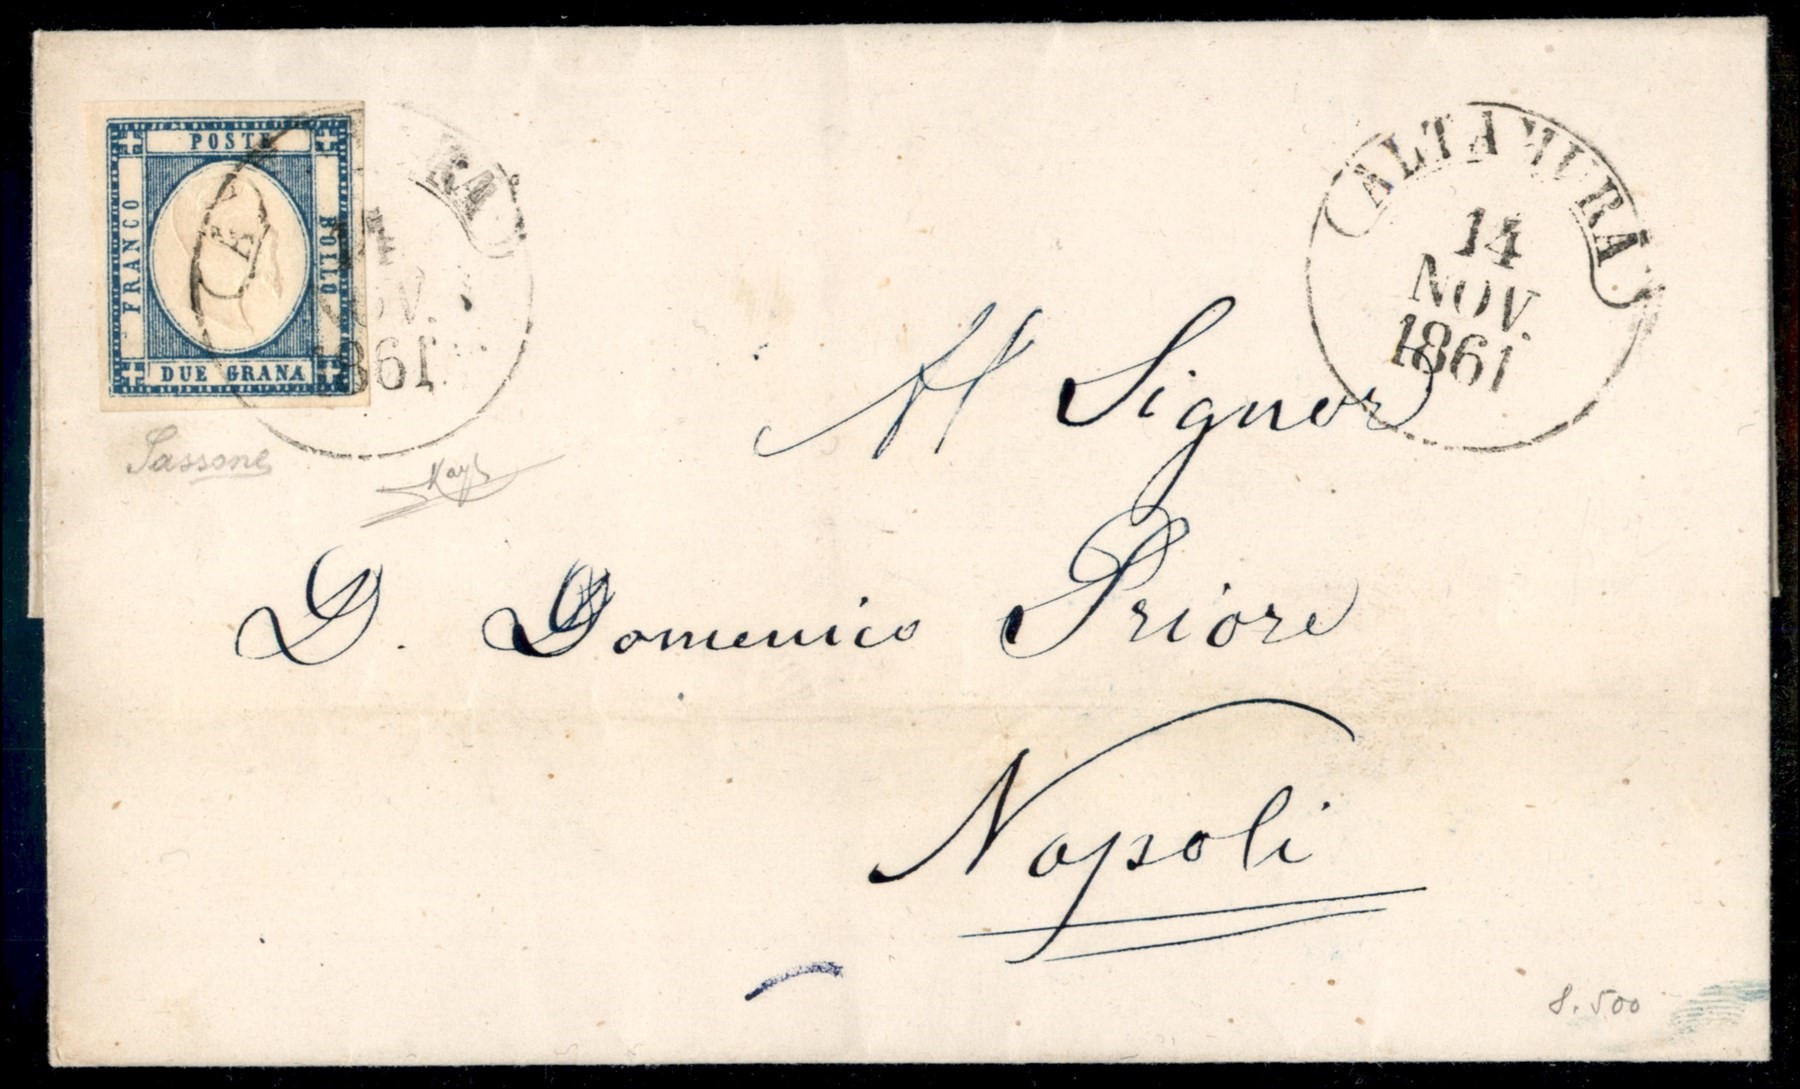 POSTE
FRANCO
BOLLO
DUE GRANA
RA
14
NOV.
1861
ALTAMURA
14
NOV.
1861
Sassone
Al Signor
D. Domenico Priore
Napoli
8.500